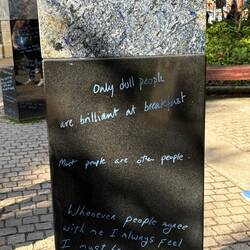 Only doll people
are brilliant at breakfast
Most people are other people.
Whenever people agree
with me I always feel
I must